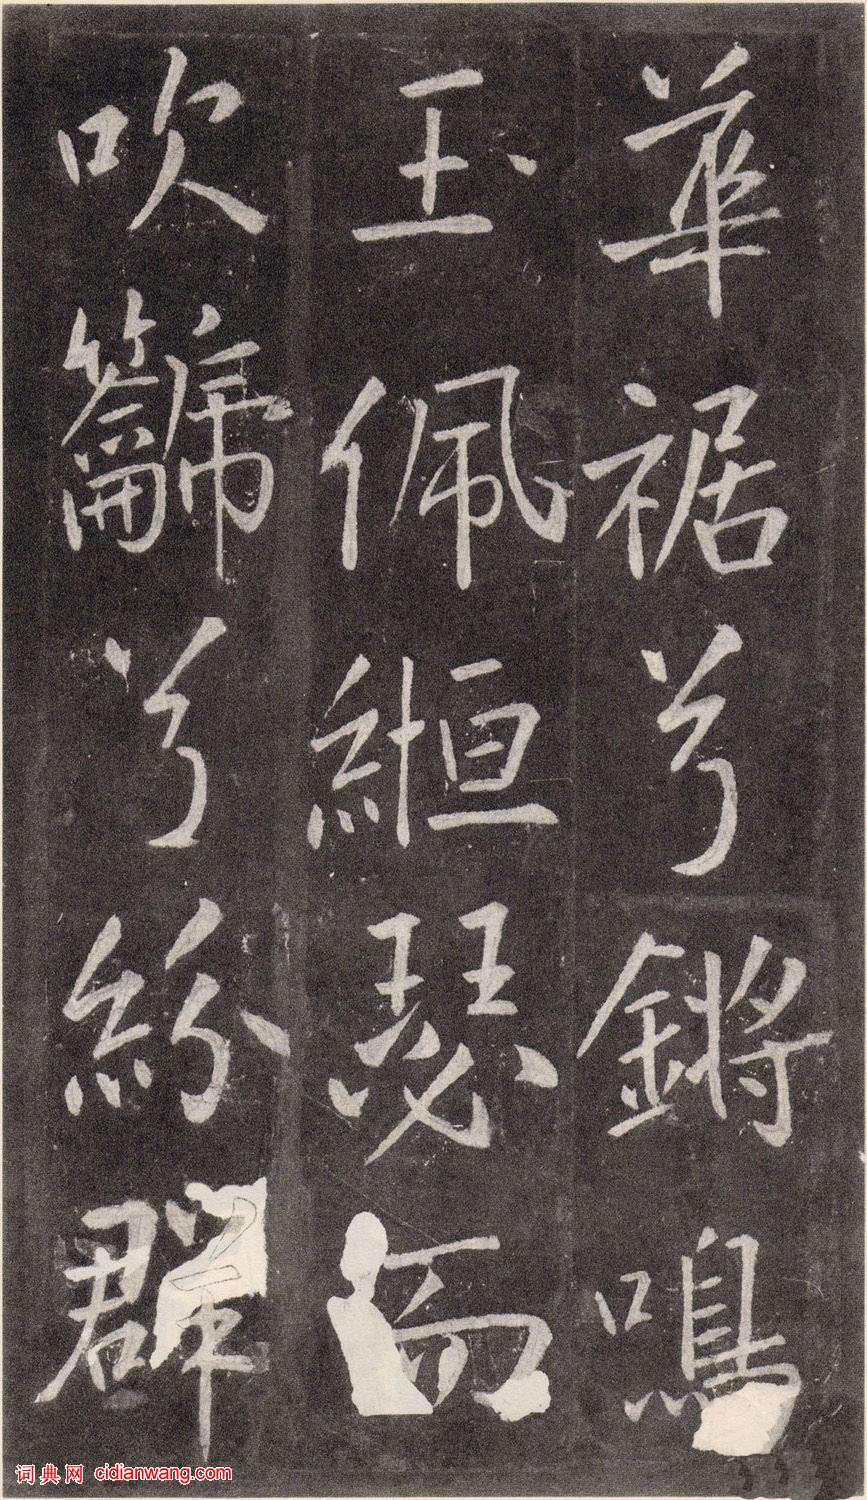 華裾兮鏘鳴
玉佩絙瑟而
吹籲兮紛群
词典网 cidianwang.com